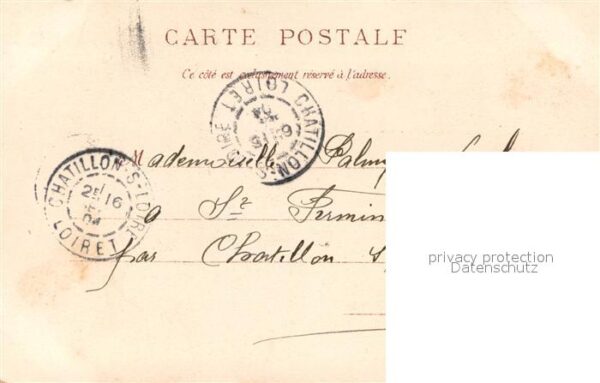 CARTE POSTALE
Ce côté est exclusivement réservé à l'adresse.
CHATILLON-S-LOIRE
LOIRET
04
CHATILLON-S-LOIRE
2E/16
04
LOIRET
Mademoiselle
à St Firmin
par Chatillon s/
privacy protection
Datenschutz